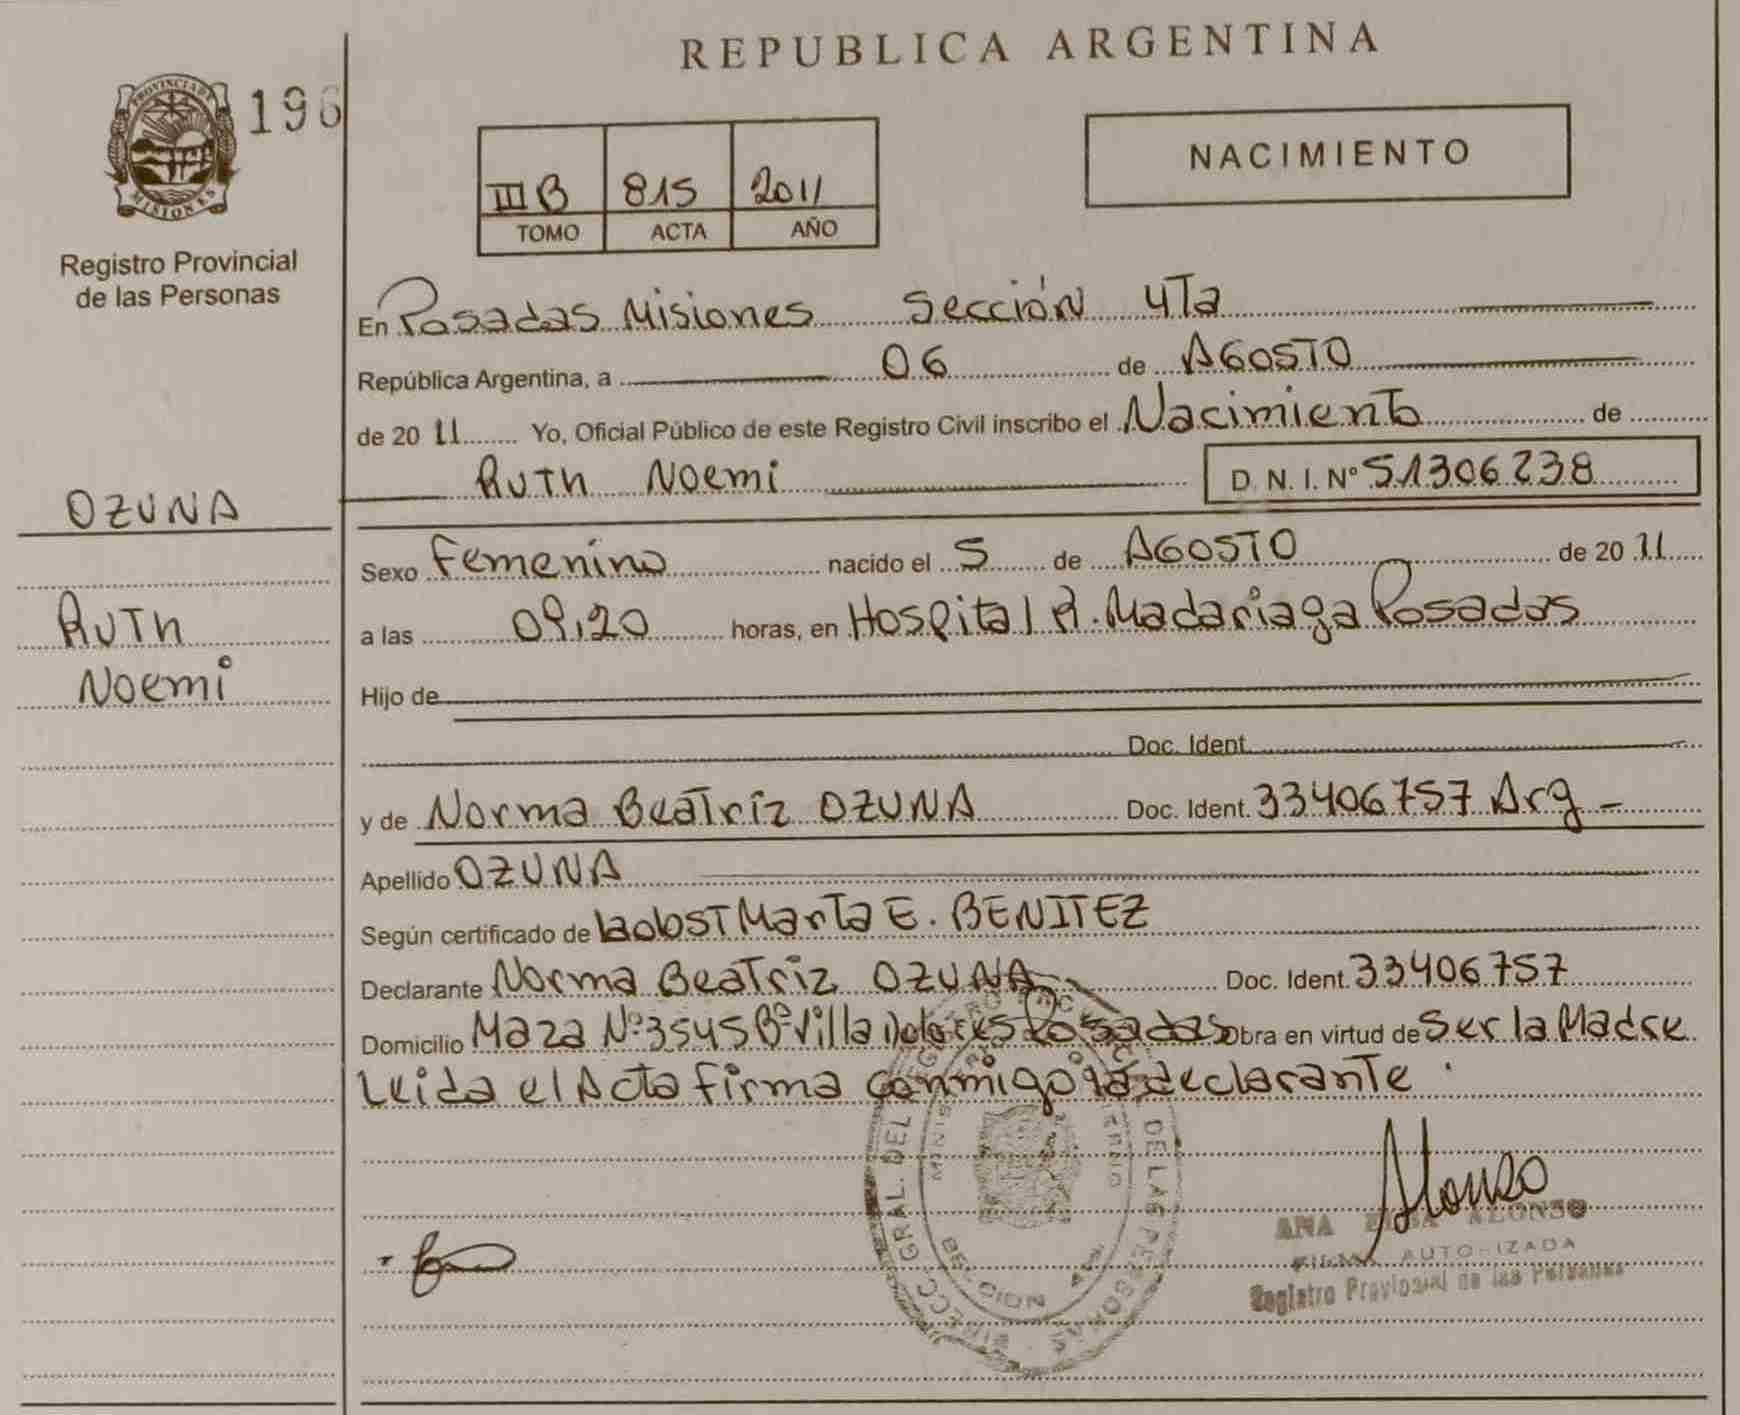 REPUBLICA ARGENTINA
PROVINCIA DE MISIONES
196
Registro Provincial
de las Personas
NACIMIENTO
III B 815 2011
TOMO ACTA AÑO
En Posadas Misiones Sección 4Ta
República Argentina, a 06 de AGOSTO
de 2011 Yo, Oficial Público de este Registro Civil inscribo el Nacimiento de
Ruth Noemi D. N. I. Nº 51306238
OZUNA
Ruth
Noemi
Sexo Femenino nacido el 5 de AGOSTO de 2011
a las 09,20 horas, en Hospital R. Madariaga Posadas
Hijo de
Doc. Ident.
y de Norma Beatriz OZUNA Doc. Ident. 33406757 Arg -
Apellido OZUNA
Según certificado de la obst Marta E. BENITEZ
Declarante Norma Beatriz OZUNA Doc. Ident. 33406757
Domicilio Maza Nº 3545 Bº Villa Dolores Posadas Obra en virtud de Ser la Madre
Leida el Acta firma conmigo la declarante.
GRAL. DEL DE LAS PERSONAS
Alonso
ANA ALONSO
FIRMA AUTORIZADA
Registro Provincial de las Personas